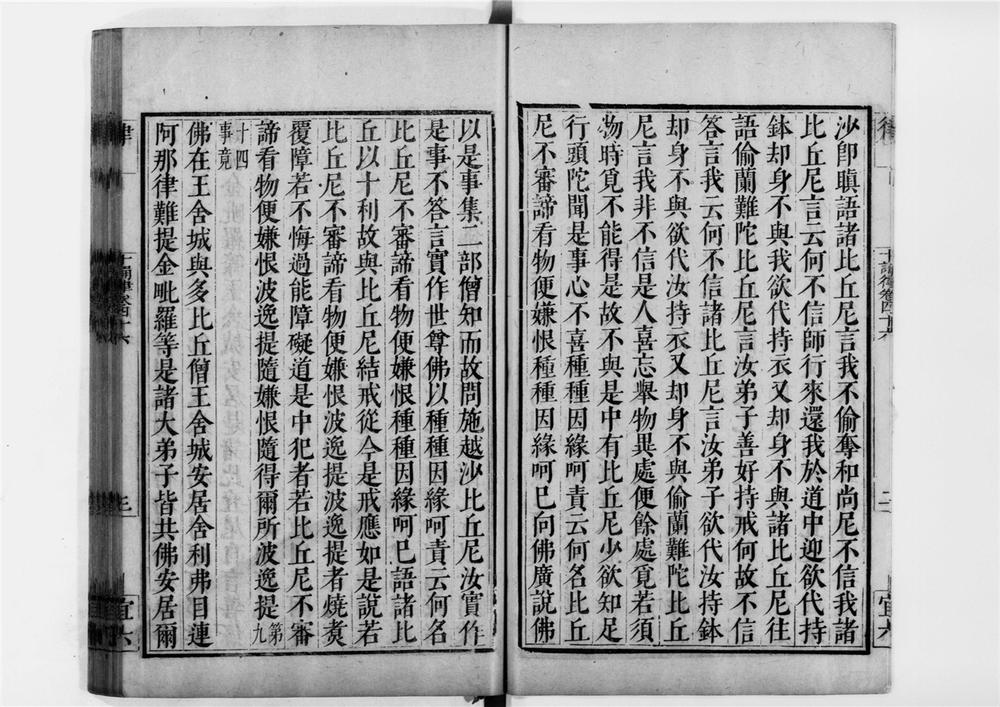 沙卽瞋語諸比丘尼言我不偷奪和尚尼不信我諸
比丘尼言云何不信師行來還我於道中迎欲代持
鉢却身不與我我欲代持衣又却身不與諸比丘尼往
語偷蘭難陀比丘尼言汝弟子善好持戒何故不信
答言我云何不信諸比丘尼言汝弟子欲代汝持鉢
却身不與欲代汝持衣又却身不與偷蘭難陀比丘
尼言我非不信是人喜忘舉物異處便餘處覓若須
物時覓不能得是故不與是中有比丘尼少欲知足
行頭陀聞是事心不喜種種因緣呵責云何名比丘
尼不審諦看物便嫌恨種種因緣呵已向佛廣說佛
以是事集二部僧知而故問施越沙比丘尼汝實作
是事不答言實作世尊佛以種種因緣呵責云何名
比丘尼不審諦看物便嫌恨種種因緣呵已語諸比
丘以十利故與比丘尼結戒從今是戒應如是說若
比丘尼不審諦看物便嫌恨波逸提波逸提者燒煑
覆障若不悔過能障礙道是中犯者若比丘尼不審
諦看物便嫌恨波逸提隨嫌恨隨得爾所波逸提第九
十四
事竟
佛在王舍城與多比丘僧王舍城安居舍利弗目連
阿那律難提金毗羅等是諸大弟子皆共佛安居爾
律
十誦律卷四十六
二
宜六
律
十誦律卷四十六
三
宜六